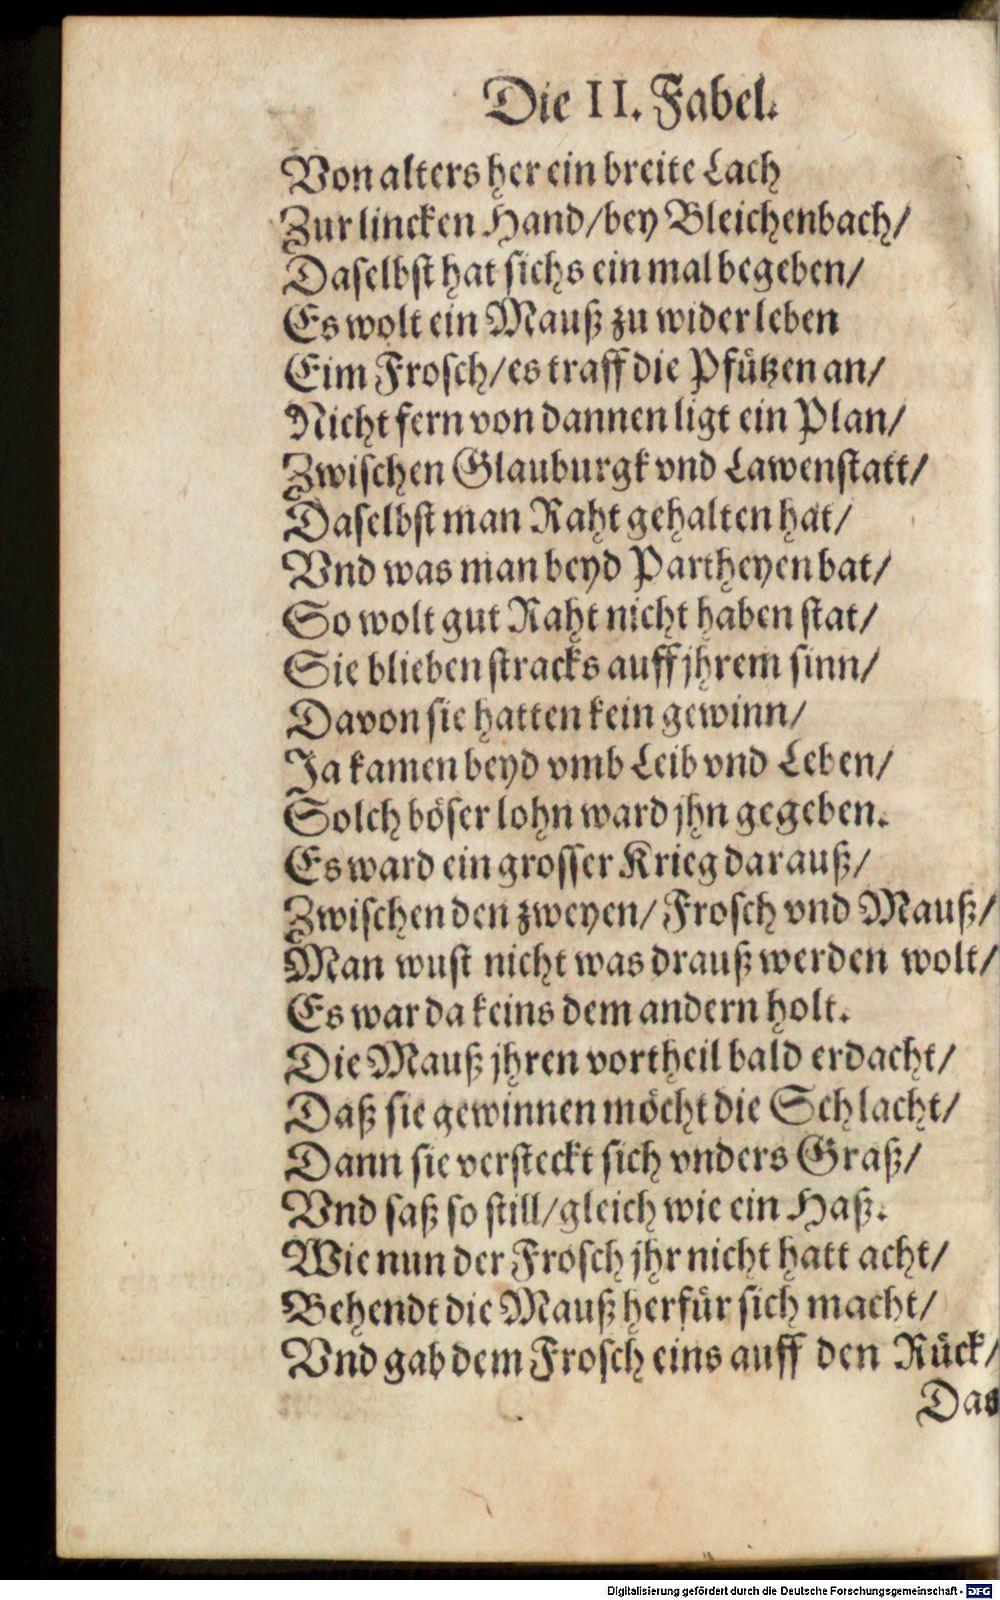 Die II. Fabel.
Von alters her ein breite Lach
Zur lincken Hand/bey Bleichenbach/
Daselbst hat sichs ein mal begeben/
Es wolt ein Mauß zu wider leben
Eim Frosch/es traff die Pfützen an/
Nicht fern von dannen ligt ein Plan/
Zwischen Glauburgk vnd Lawenstatt/
Daselbst man Raht gehalten hat/
Vnd was man beyd Partheyen bat/
So wolt gut Raht nicht haben stat/
Sie blieben stracks auff jhrem sinn/
Davon sie hatten kein gewinn/
Ja kamen beyd vmb Leib vnd Leben/
Solch böser lohn ward jhn gegeben.
Es ward ein grosser Krieg darauß/
Zwischen den zweyen/ Frosch vnd Mauß/
Man wust nicht was drauß werden wolt/
Es war da keins dem andern holt.
Die Mauß jhren vortheil bald erdacht/
Daß sie gewinnen möcht die Schlacht/
Dann sie versteckt sich vnders Graß/
Vnd saß so still/gleich wie ein Haß.
Wie nun der Frosch jhr nicht hatt acht/
Behendt die Mauß herfür sich macht/
Vnd gab dem Frosch eins auff den Rück/
Das
Digitalisierung gefördert durch die Deutsche Forschungsgemeinschaft - DFG